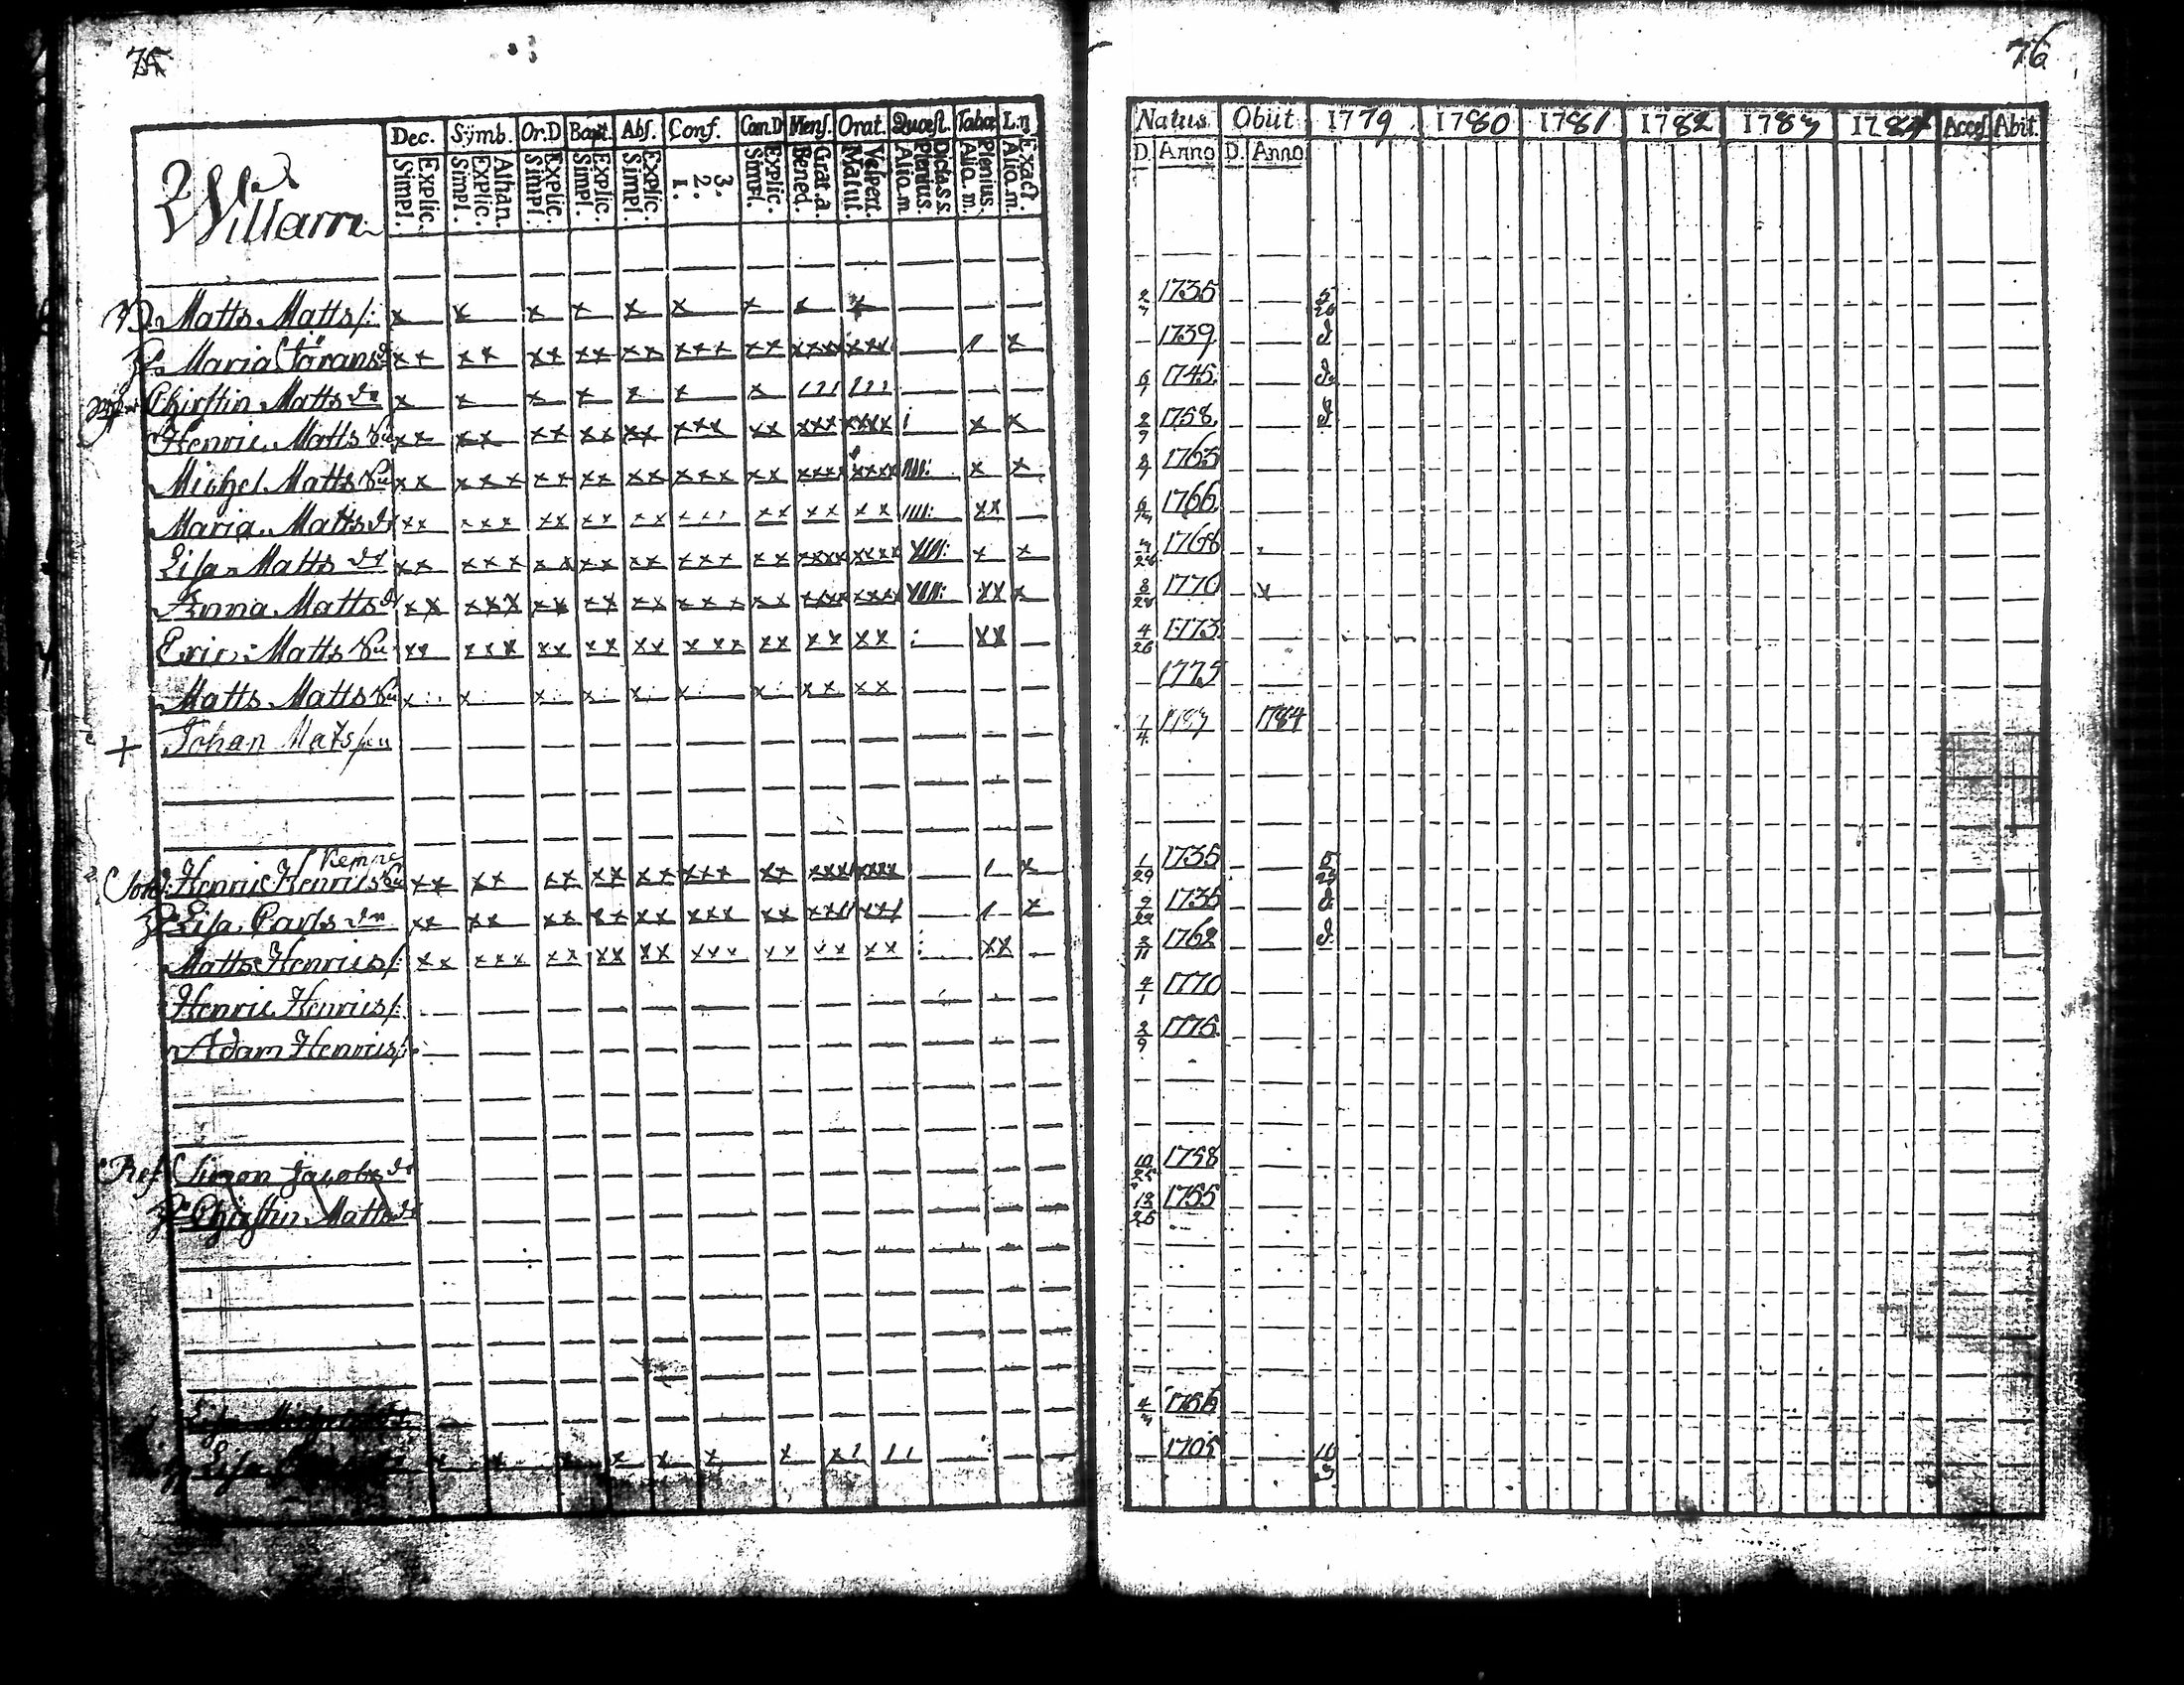 75
76
2
Willam
Dec. Symb. Or.D Bapt. Abs. Conf. Cœn.D Mens. Orat. Quæst. Tabæ L.n
Explic. Simpl. Athan. Explic. Simpl. Explic. Simpl. Explic. Simpl. Explic. Simpl. 3. 2. 1. Explic. Simpl. Grat. a. Bened. Vespert. Matut. Dicta S.S. Plenius. Alio. m. Plenius. Alio. m. Exact. Alio. m.
Natus. Obiit 1779 1780 1781 1782 1783 1784 Acces. Abit.
D. Anno D. Anno
Matts Matts s: x x x x x x x x x 2/7 1735 5/26
H. Maria Görans d xx xx xx xx xx xxx xx xxxx xxx 1 x 1739 d
Chirstin Matts dr x x x x x x x 111 111 6/1 1745 d.
Henric Matts xx xx xx xx xx xxx xx xxx xxxx i x x 2/9 1758 d
Michel Matts xx xxx xx xx xx xxx xx xxxx xxxx 1111: x x 1763
Maria Matts dr xx xxx xx xx xx xxx xx xx xx 1111: xx 1766
Lisa Matts dr xx xxx xx xx xx xxx xx xxxx xxxx x x 1768
Anna Matts d xx xxx xx xx xx xxx xx xxxx xxxx xx x 8/28 1770
Eric Matts xx xxx xx xx xx xxx xx xx xx : xx 4/26 1773
Matts Matts x x x x x x x xx xx 1775
+ Johan Mats 1/4 1783 1784
Kempe
Henric Henrics xx xx xx xx xx xxx xx xxxx xxxx 1 x 1/29 1735 5/23
H. Lisa Pauls dr xx xx xx xx xx xxx xx 1 x 9/22 1735 d
Matts Henrics s: xx xxx xx xx xx xxx xx xx xx : xx 2/11 1762 d.
Henric Henrics s: 4/1 1770
Adam Henrics s: 2/9 1775
Ref Simon Jacobs 10/25 1758
H. Chirstin Matts dr 12/26 1755
1756
Lisa x x x x x x x x1 11 1705 10/5